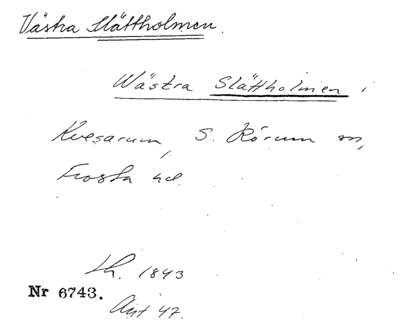 Västra Slättholmen.
Wästra Slättholmen i
Kvesarum, S. Rörum sn,
Frosta hd.
Lh. 1843
Nr 6743.
Avst 47.